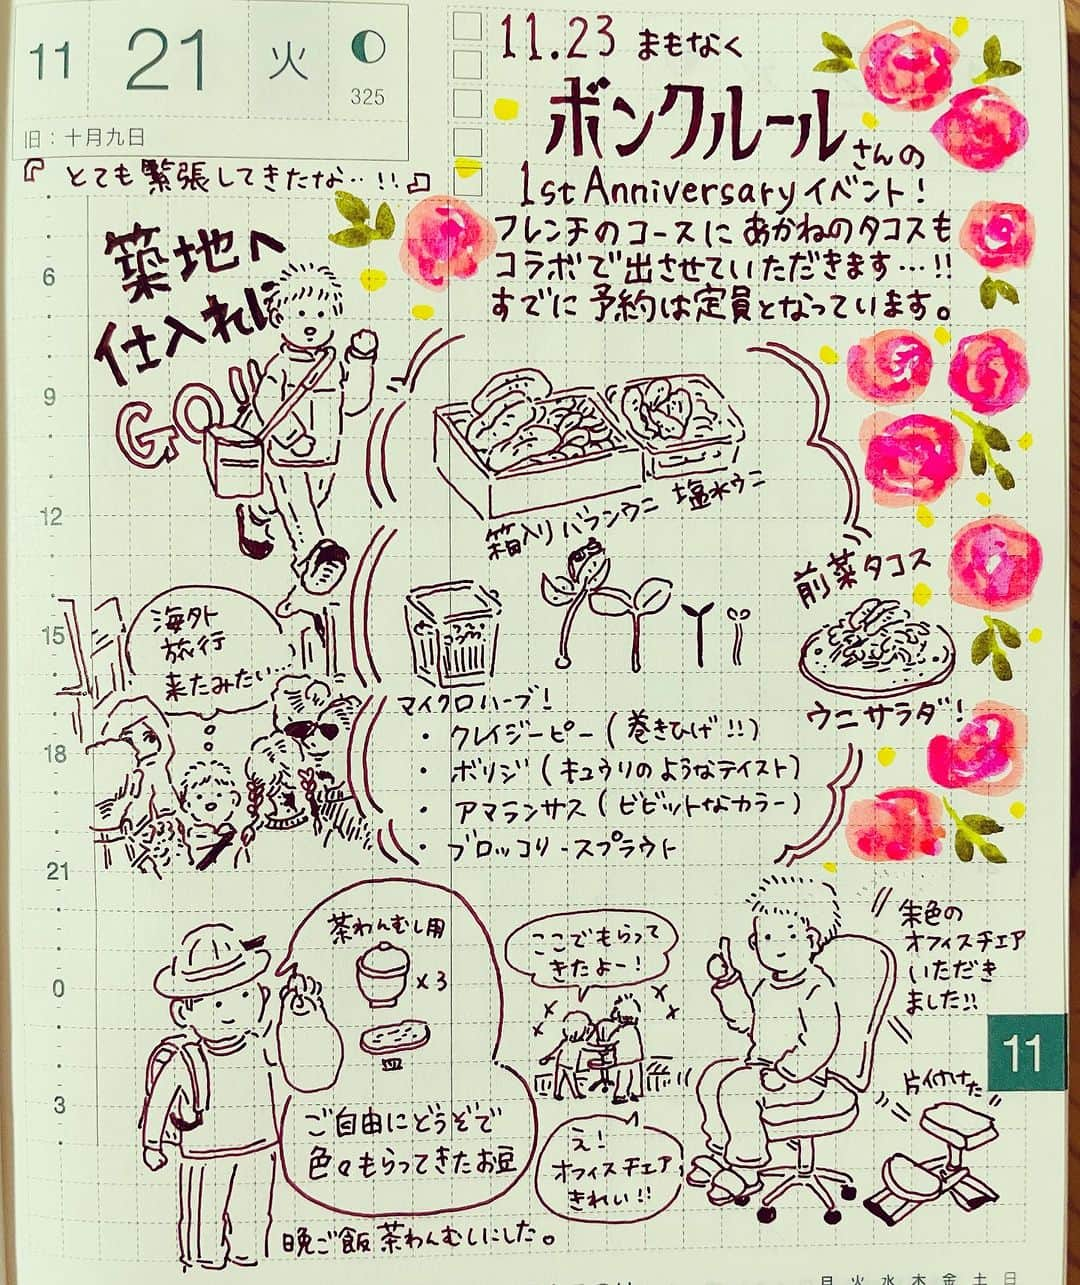 11 21 火
325
旧：十月九日
『とても緊張してきたな‥!!』
11.23 まもなく
ボンクルールさんの
1st Anniversary イベント!
フレンチのコースにあかねのタコスも
コラボで出させていただきます…!!
すでに予約は定員となっています。
築地へ
仕入れに
GO!!
6
9
12
15
18
21
0
3
箱入りバランウニ 塩水ウニ
前菜タコス
ウニサラダ!
マイクロハーブ!
・クレイジーピー(巻きひげ!!)
・ボリジ(キュウリのようなテイスト)
・アマランサス(ビビットなカラー)
・ブロッコリースプラウト
海外
旅行
来たみたい…
茶わんむし用
×3
皿
ご自由にどうぞで
色々もらってきたお豆
晩ご飯茶わんむしにした。
ここでもらって
きたよー!
え!
オフィスチェア
きれい!!
朱色の
オフィスチェア
いただき
ました!!
片付けた
11
月 火 水 木 金 土 日